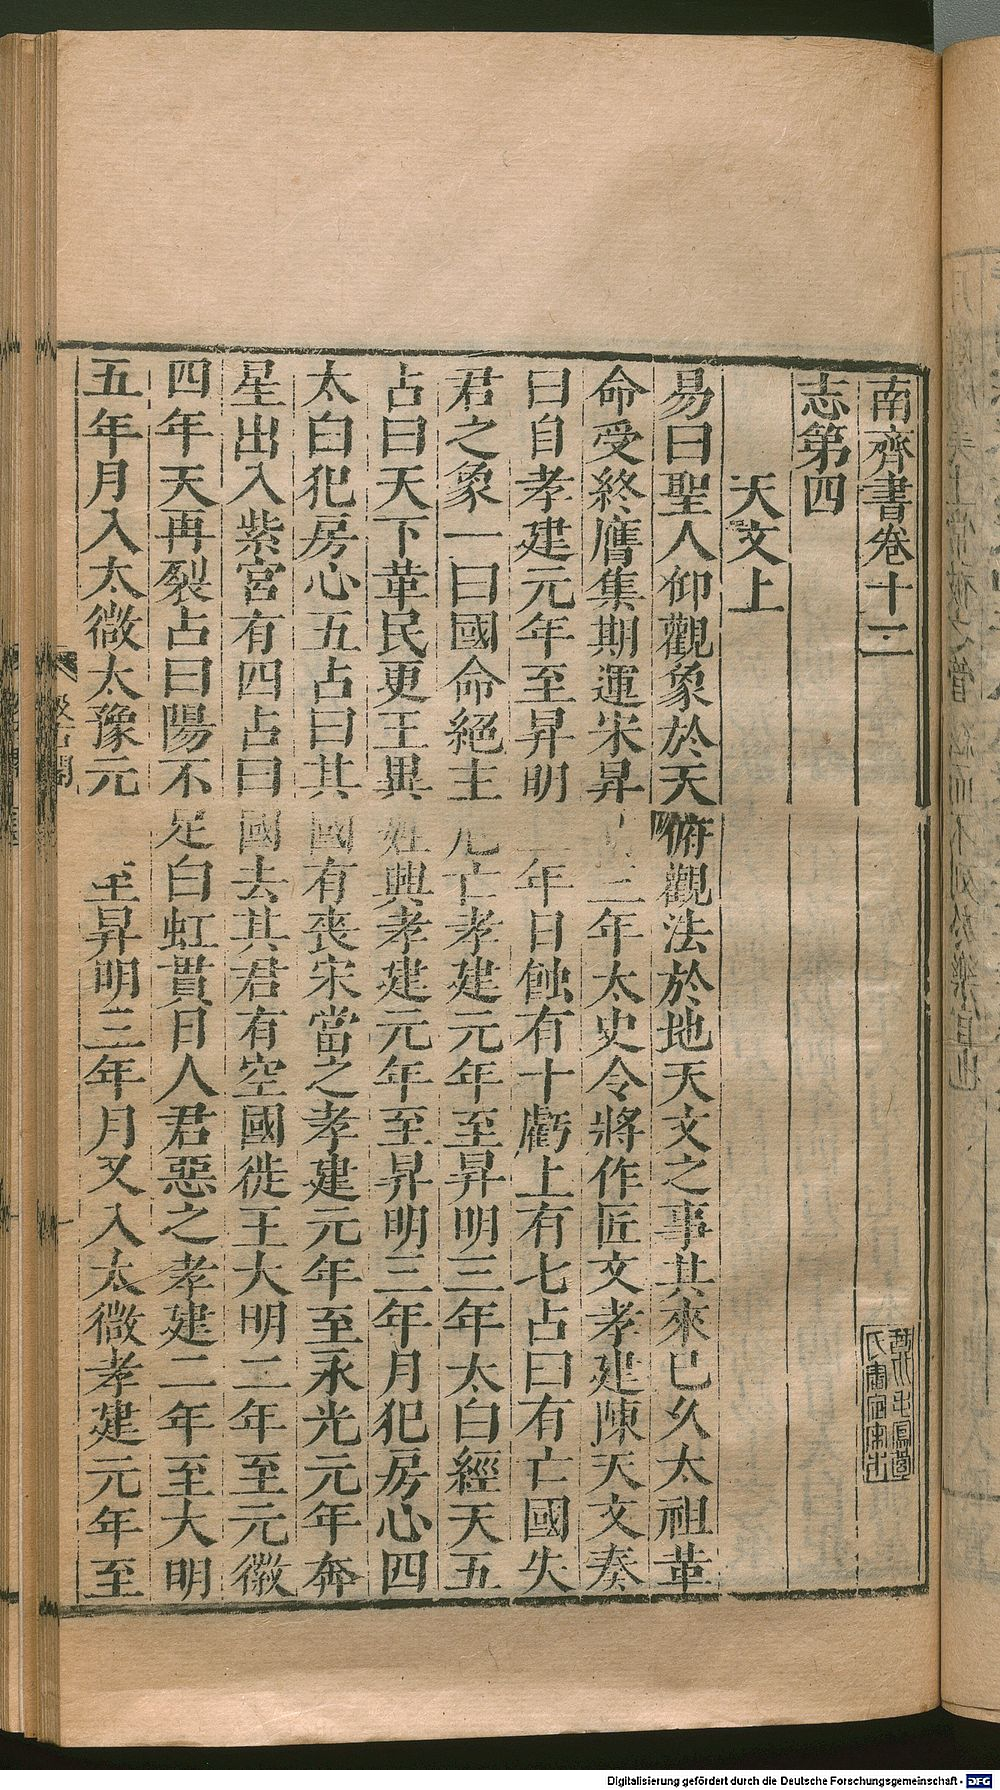 南齊書卷十二
志第四
天文上
易曰聖人仰觀象於天俯觀法於地天文之事其來已久太祖革
命受終膺集期運宋昇明三年太史令將作匠文孝建陳天文奏
曰自孝建元年至昇明三年日蝕有十虧上有七占曰有亡國失
君之象一曰國命絕主危亡孝建元年至昇明三年太白經天五
占曰天下革民更王異姓興孝建元年至昇明三年月犯房心四
太白犯房心五占曰其國有喪宋當之孝建元年至永光元年奔
星出入紫宮有四占曰國去其君有空國徙王大明二年至元徽
四年天再裂占曰陽不足白虹貫日人君惡之孝建二年至大明
五年月入太微太豫元 至昇明三年月又入太微孝建元年至
Digitalisierung gefördert durch die Deutsche Forschungsgemeinschaft - DFG